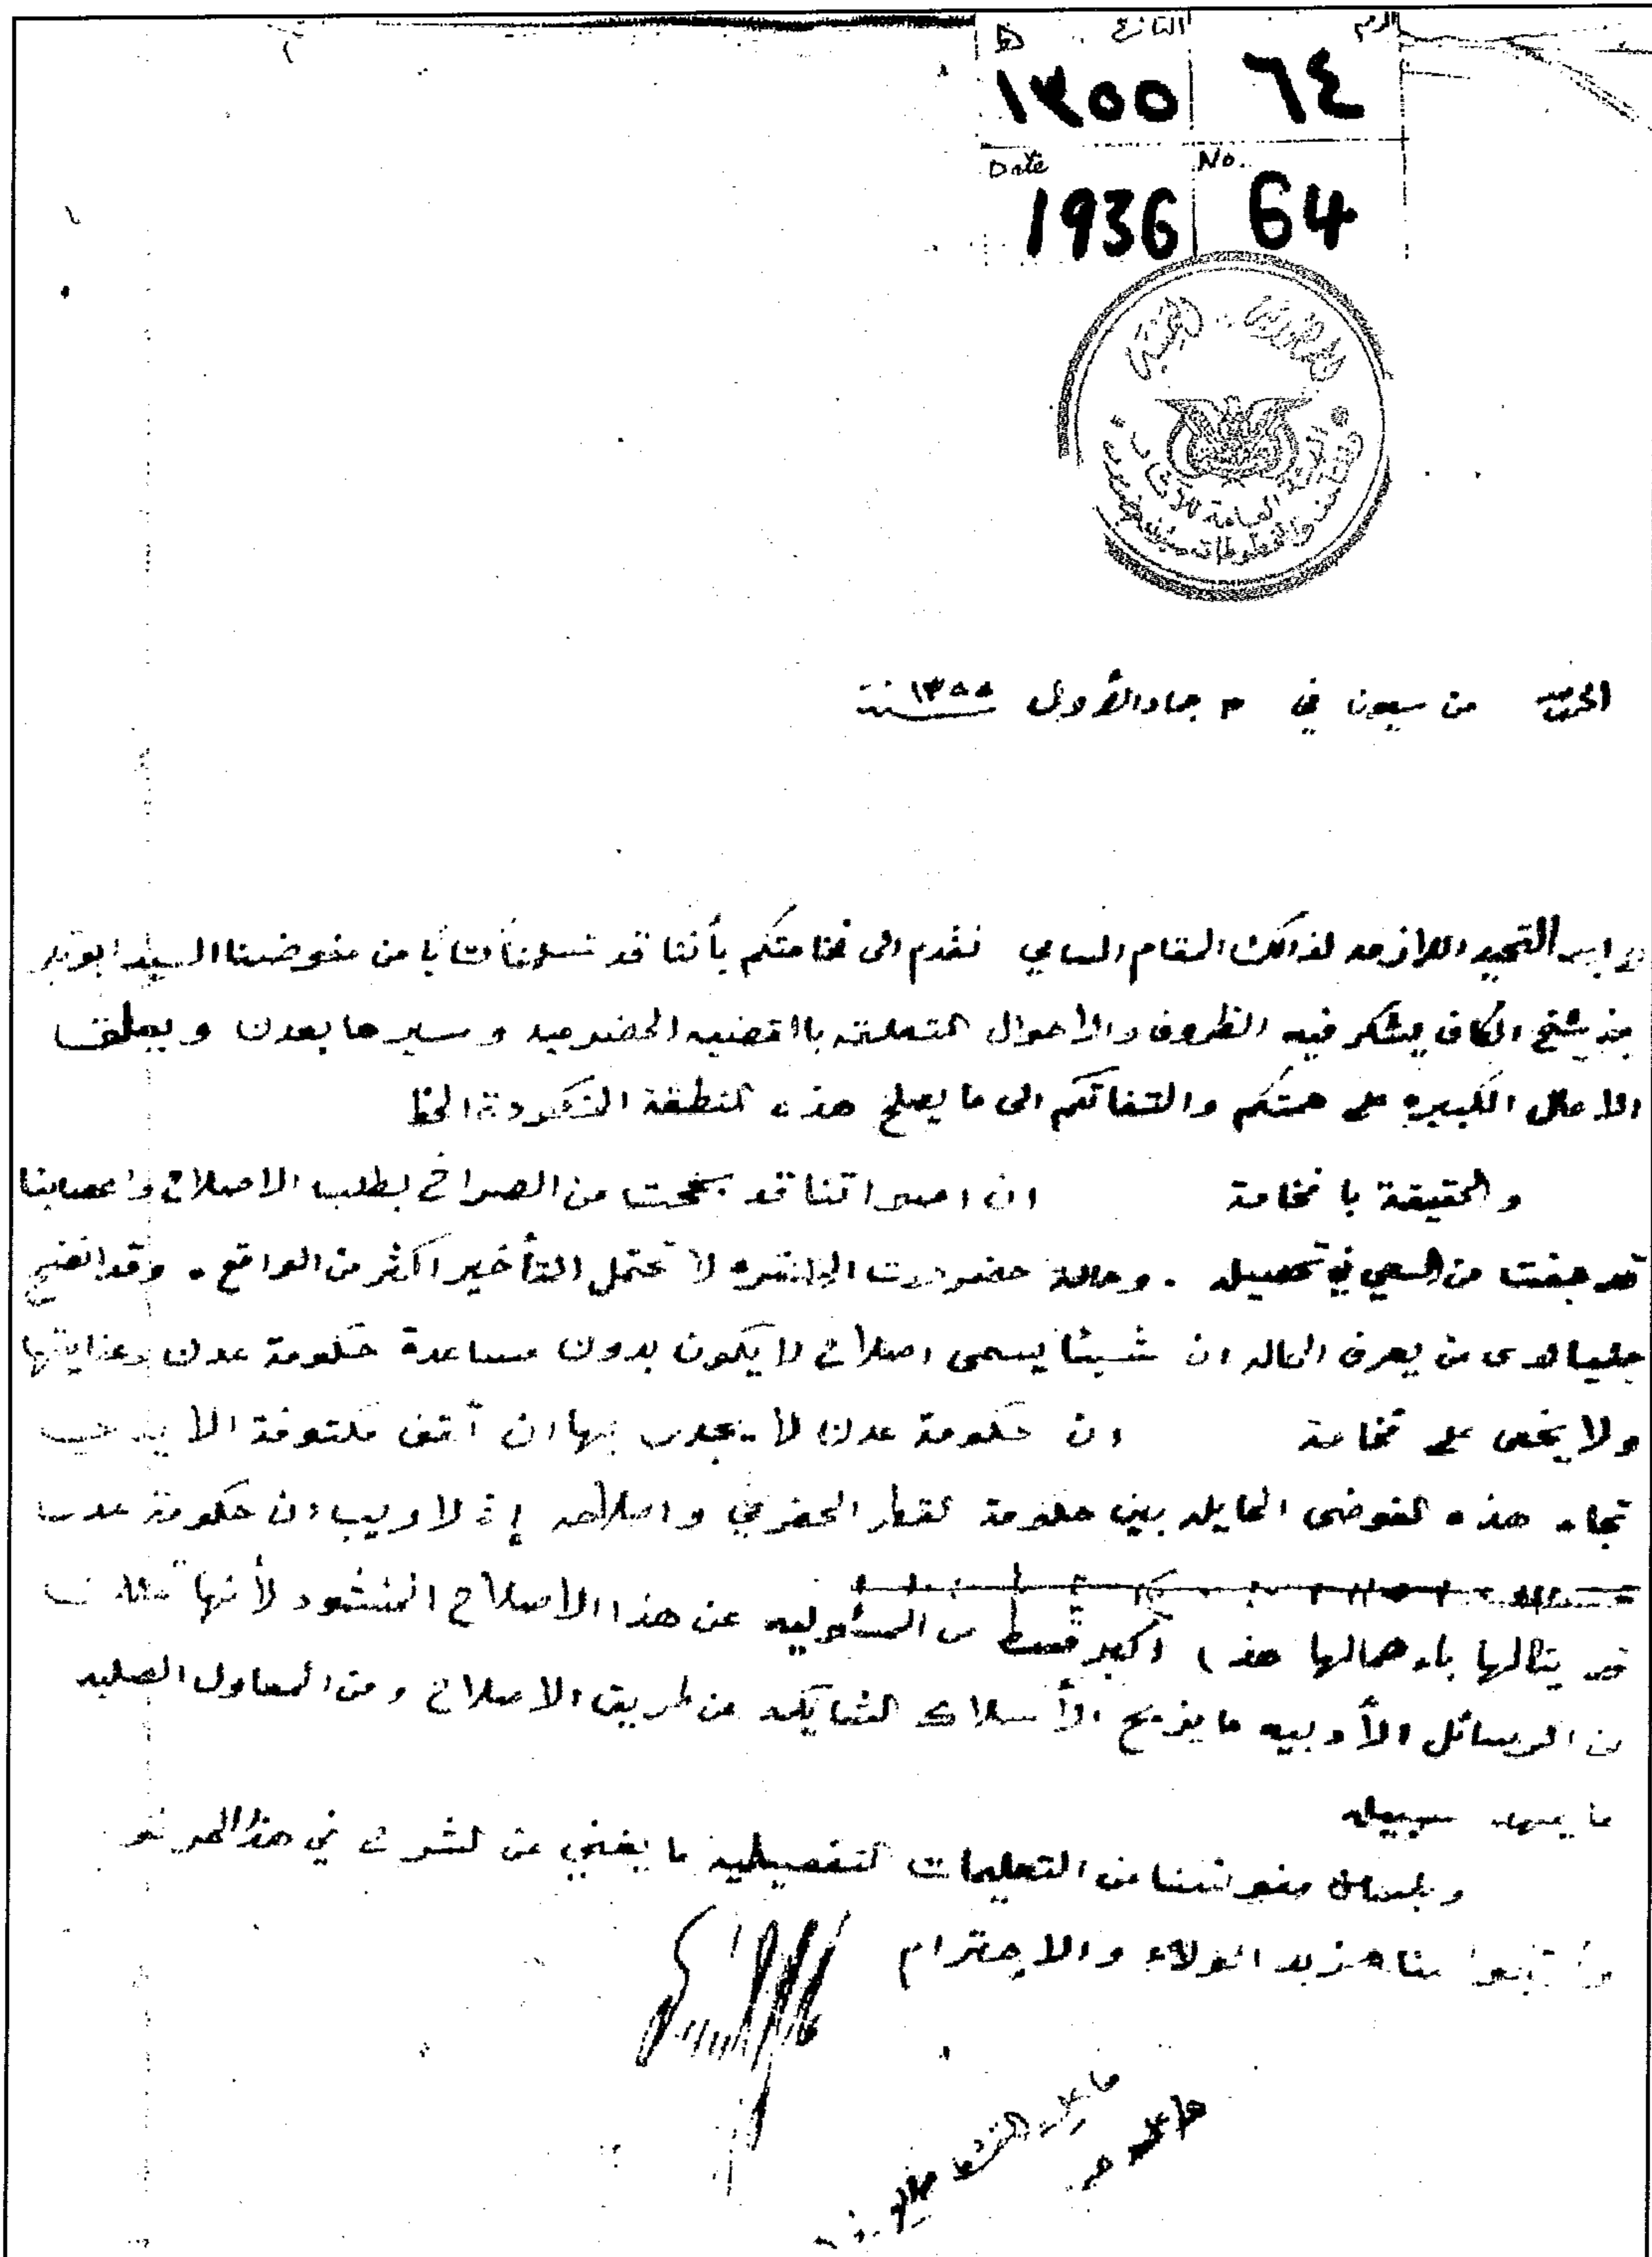 الرقم التاريخ هـ
٦٤ ١٣٥٥
No. Date
64 1936
الجمهورية اليمنية
من سيون في ٣ جماد الأول سنة ١٣٥٥
التحيه اللازمه لذالك المقام السامي نقدم الى فخامتكم بأننا قد تسلمنا كتابا من مفوضنا السيد ابوبكر
بن شيخ الكاف يشكر فيه الظروف والاحوال المتعلقه باالقضيه الحضرميه وسيرها بعدن ويعلق
الامال الكبيره على همتكم والتفاتكم الى ما يصلح هذه المنطقة المنكودة الحظ
والحقيقة يا فخامة ان اصواتنا قد بحت من الصراخ بطلب الاصلاح واعصابنا
قد من السعي في تحصيله . وحالة حضرموت الحاضره لا تحتمل التأخير اكثر من الواقع . وقد اتضح
جليا لدى من يعرف الحاله ان شيئا يسمى اصلاح لا يكون بدون مساعدة حكومة عدن وعنايتها
ولا يخفى على فخامة ان حكومة عدن لا يجدر بها ان تقف مكتوفة الايدي
تجاه هذه الفوضى الحايله بين حكومة القطر الحضرمي واصلاحه إذ لا ريب ان حكومة عدن
قد ينالها باهمالها هذا اكبر قسط من المسئوليه عن هذا الاصلاح المنشود لأنها تملك
من الوسائل الأدبيه ما يزيح الأسلاك الشايكه عن طريق الاصلاح ومن المعاول الصلبه
ما يمهد سبيله
وبلسان مفوضنا من التعليمات التفصيليه ما يغني عن الشرح في هذا
منا مزيد الولاء والاحترام